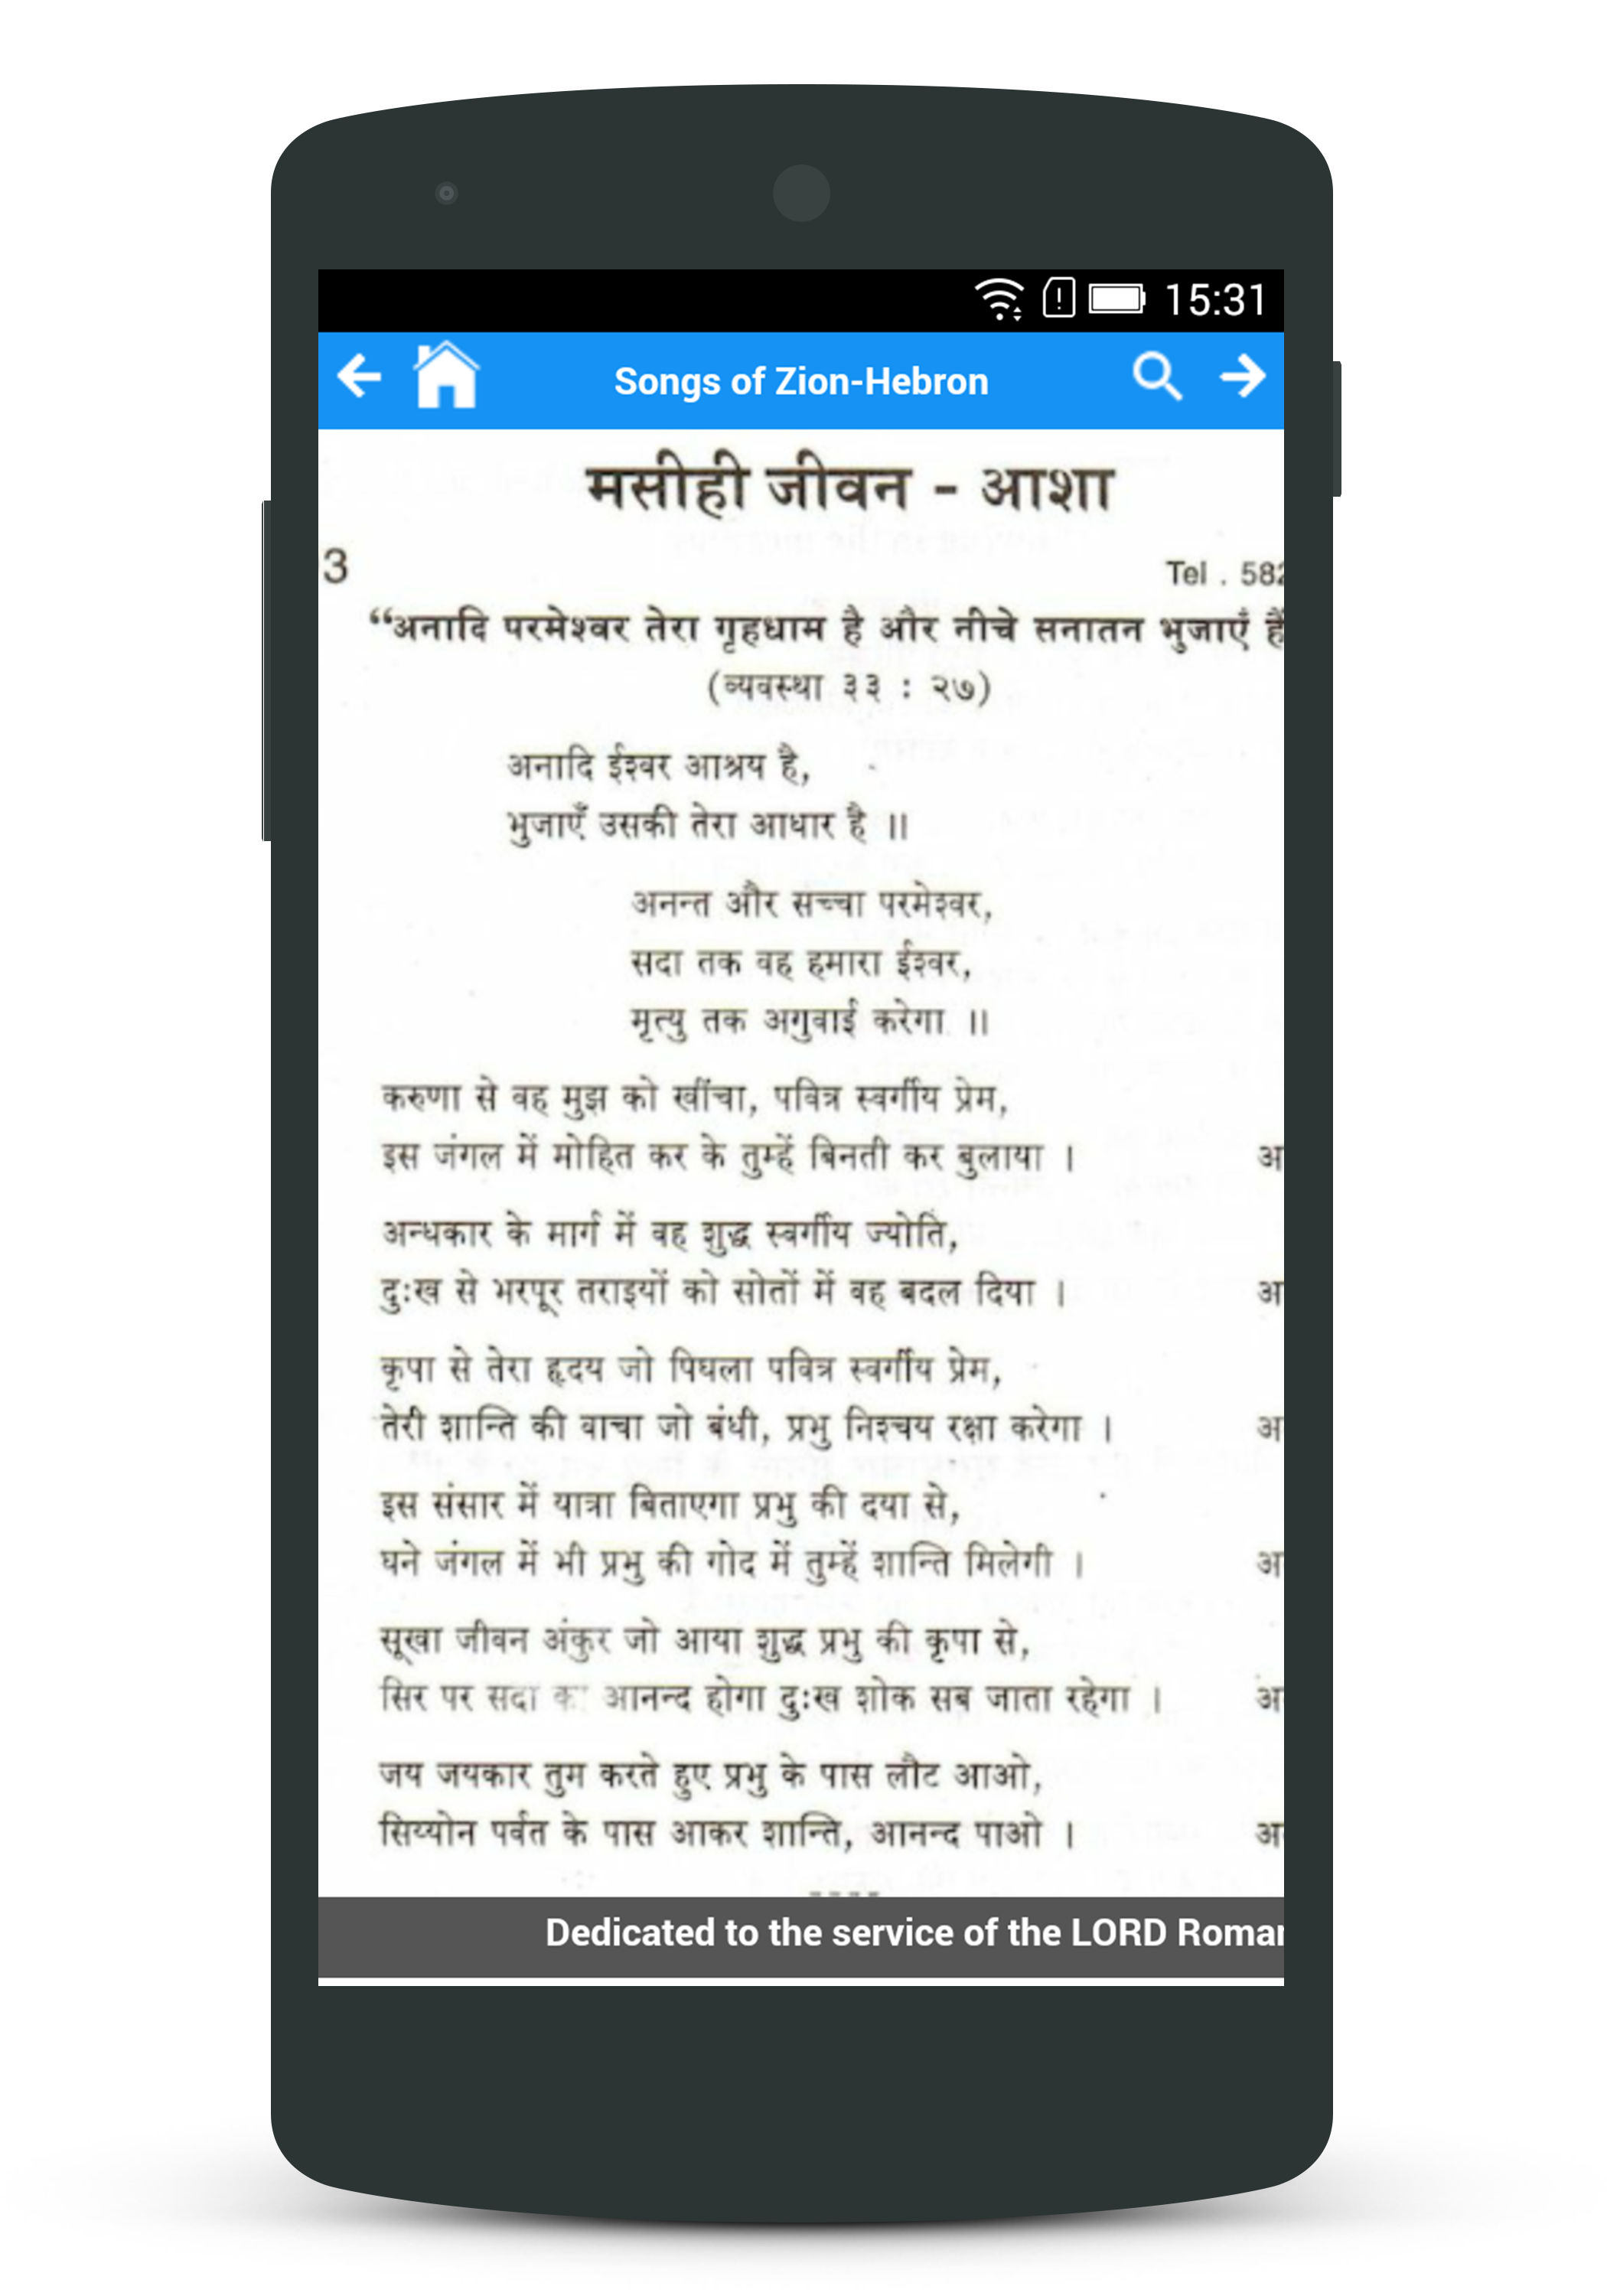 15:31
Songs of Zion-Hebron
मसीही जीवन - आशा
3 Tel . 582
“अनादि परमेश्वर तेरा गृहधाम है और नीचे सनातन भुजाएँ हैं
(व्यवस्था ३३ : २७)
अनादि ईश्वर आश्रय है,
भुजाएँ उसकी तेरा आधार है ॥
अनन्त और सच्चा परमेश्वर,
सदा तक वह हमारा ईश्वर,
मृत्यु तक अगुवाई करेगा ॥
करुणा से वह मुझ को खींचा, पवित्र स्वर्गीय प्रेम,
इस जंगल में मोहित कर के तुम्हें बिनती कर बुलाया । अ
अन्धकार के मार्ग में वह शुद्ध स्वर्गीय ज्योति,
दुःख से भरपूर तराइयों को सोतों में वह बदल दिया । अ
कृपा से तेरा हृदय जो पिघला पवित्र स्वर्गीय प्रेम,
तेरी शान्ति की वाचा जो बंधी, प्रभु निश्चय रक्षा करेगा । अ
इस संसार में यात्रा बिताएगा प्रभु की दया से,
घने जंगल में भी प्रभु की गोद में तुम्हें शान्ति मिलेगी । अ
सूखा जीवन अंकुर जो आया शुद्ध प्रभु की कृपा से,
सिर पर सदा का आनन्द होगा दुःख शोक सब जाता रहेगा । अ
जय जयकार तुम करते हुए प्रभु के पास लौट आओ,
सिय्योन पर्वत के पास आकर शान्ति, आनन्द पाओ । अ
Dedicated to the service of the LORD Roman